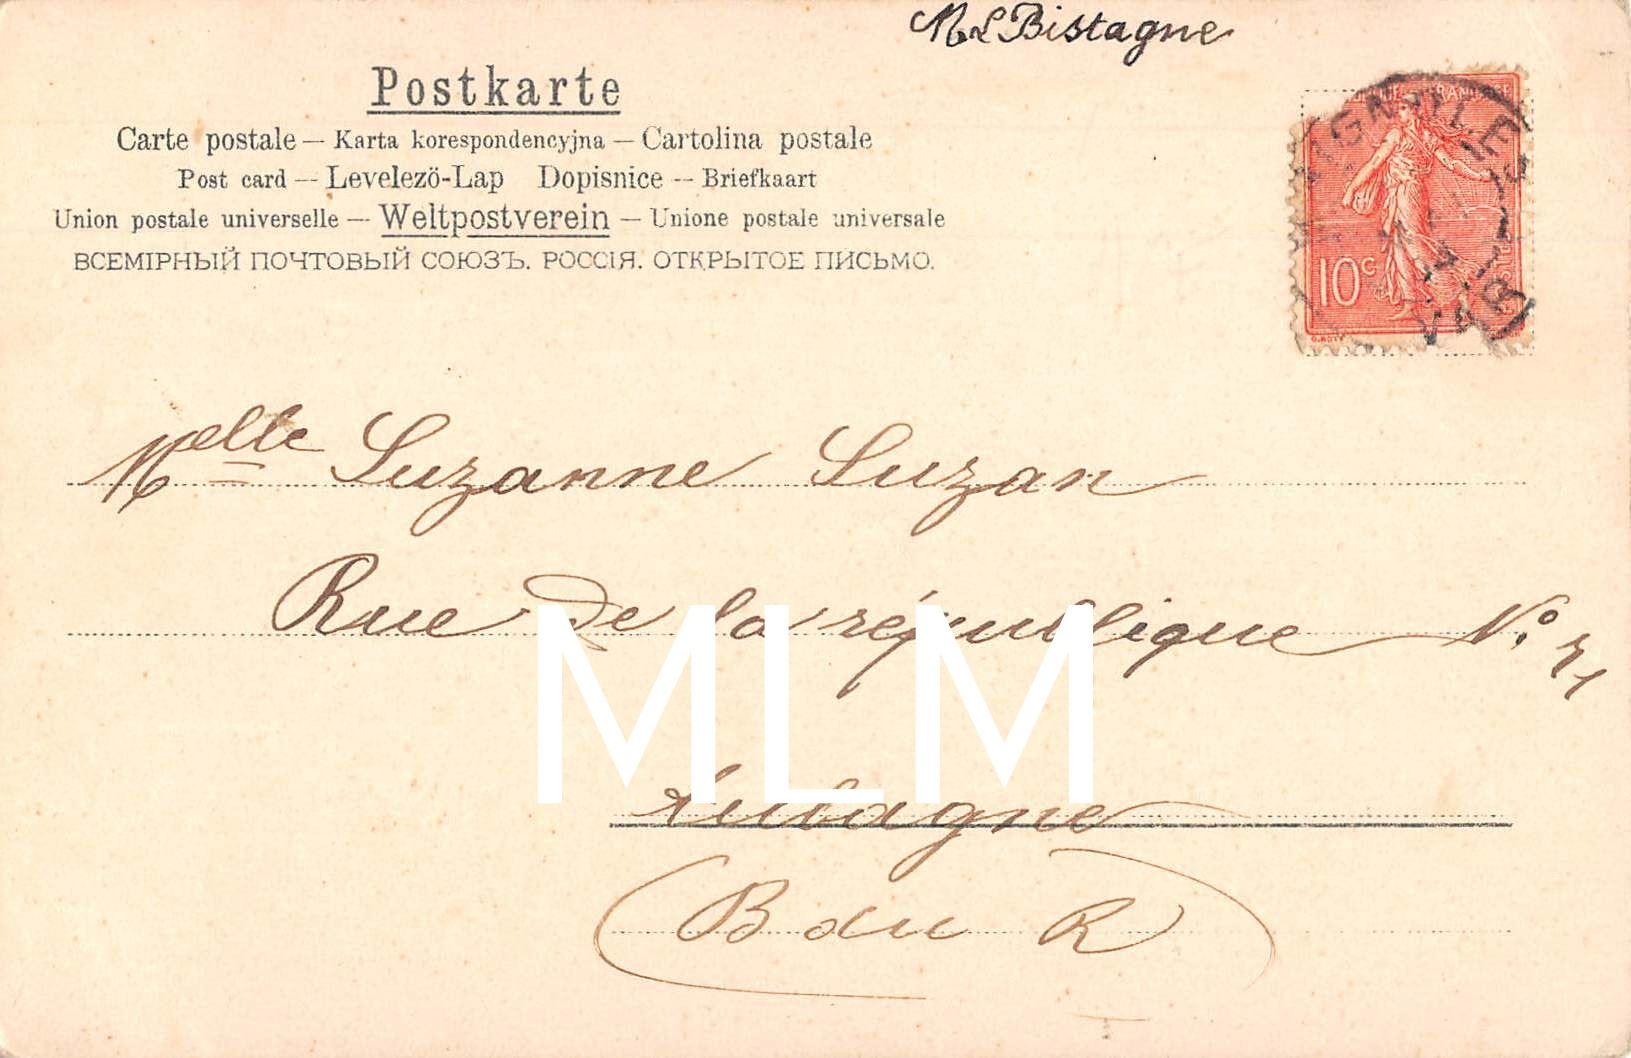 M L Bistagne
Postkarte
Carte postale — Karta korespondencyjna — Cartolina postale
Post card — Levelezö-Lap Dopisnice — Briefkaart
Union postale universelle — Weltpostverein — Unione postale universale
ВСЕМІРНЫЙ ПОЧТОВЫЙ СОЮЗЪ. РОССІЯ. ОТКРЫТОЕ ПИСЬМО.
10c
O. ROTY
VAR
Melle Suzanne Suzan
Rue de la république No.
MLM
Aubagne
(B du R)